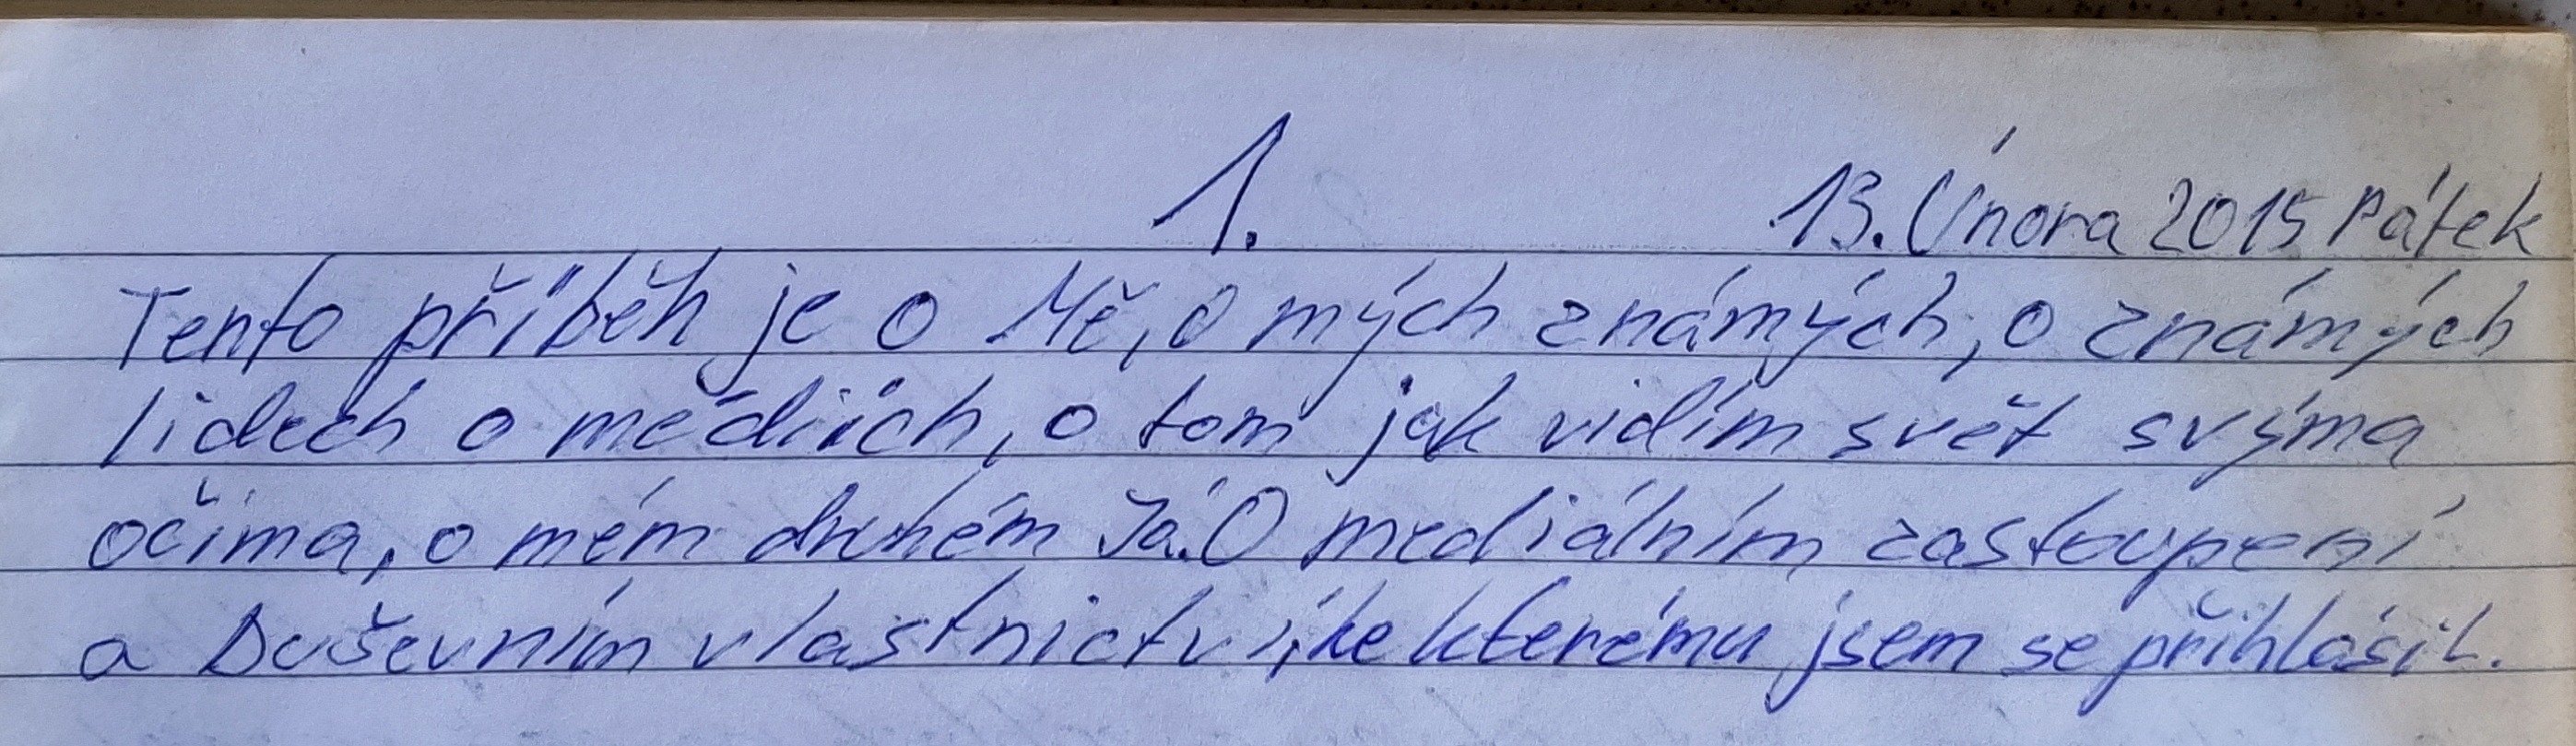 1.
13. Února 2015 Pátek
Tento příběh je o Mě, o mých známých, o známých
lidech o médiích, o tom jak vidím svět svýma
očima, o mém druhém Já. O mediálním zastoupení
a Duševním vlastnictví, ke kterému jsem se přihlásil.